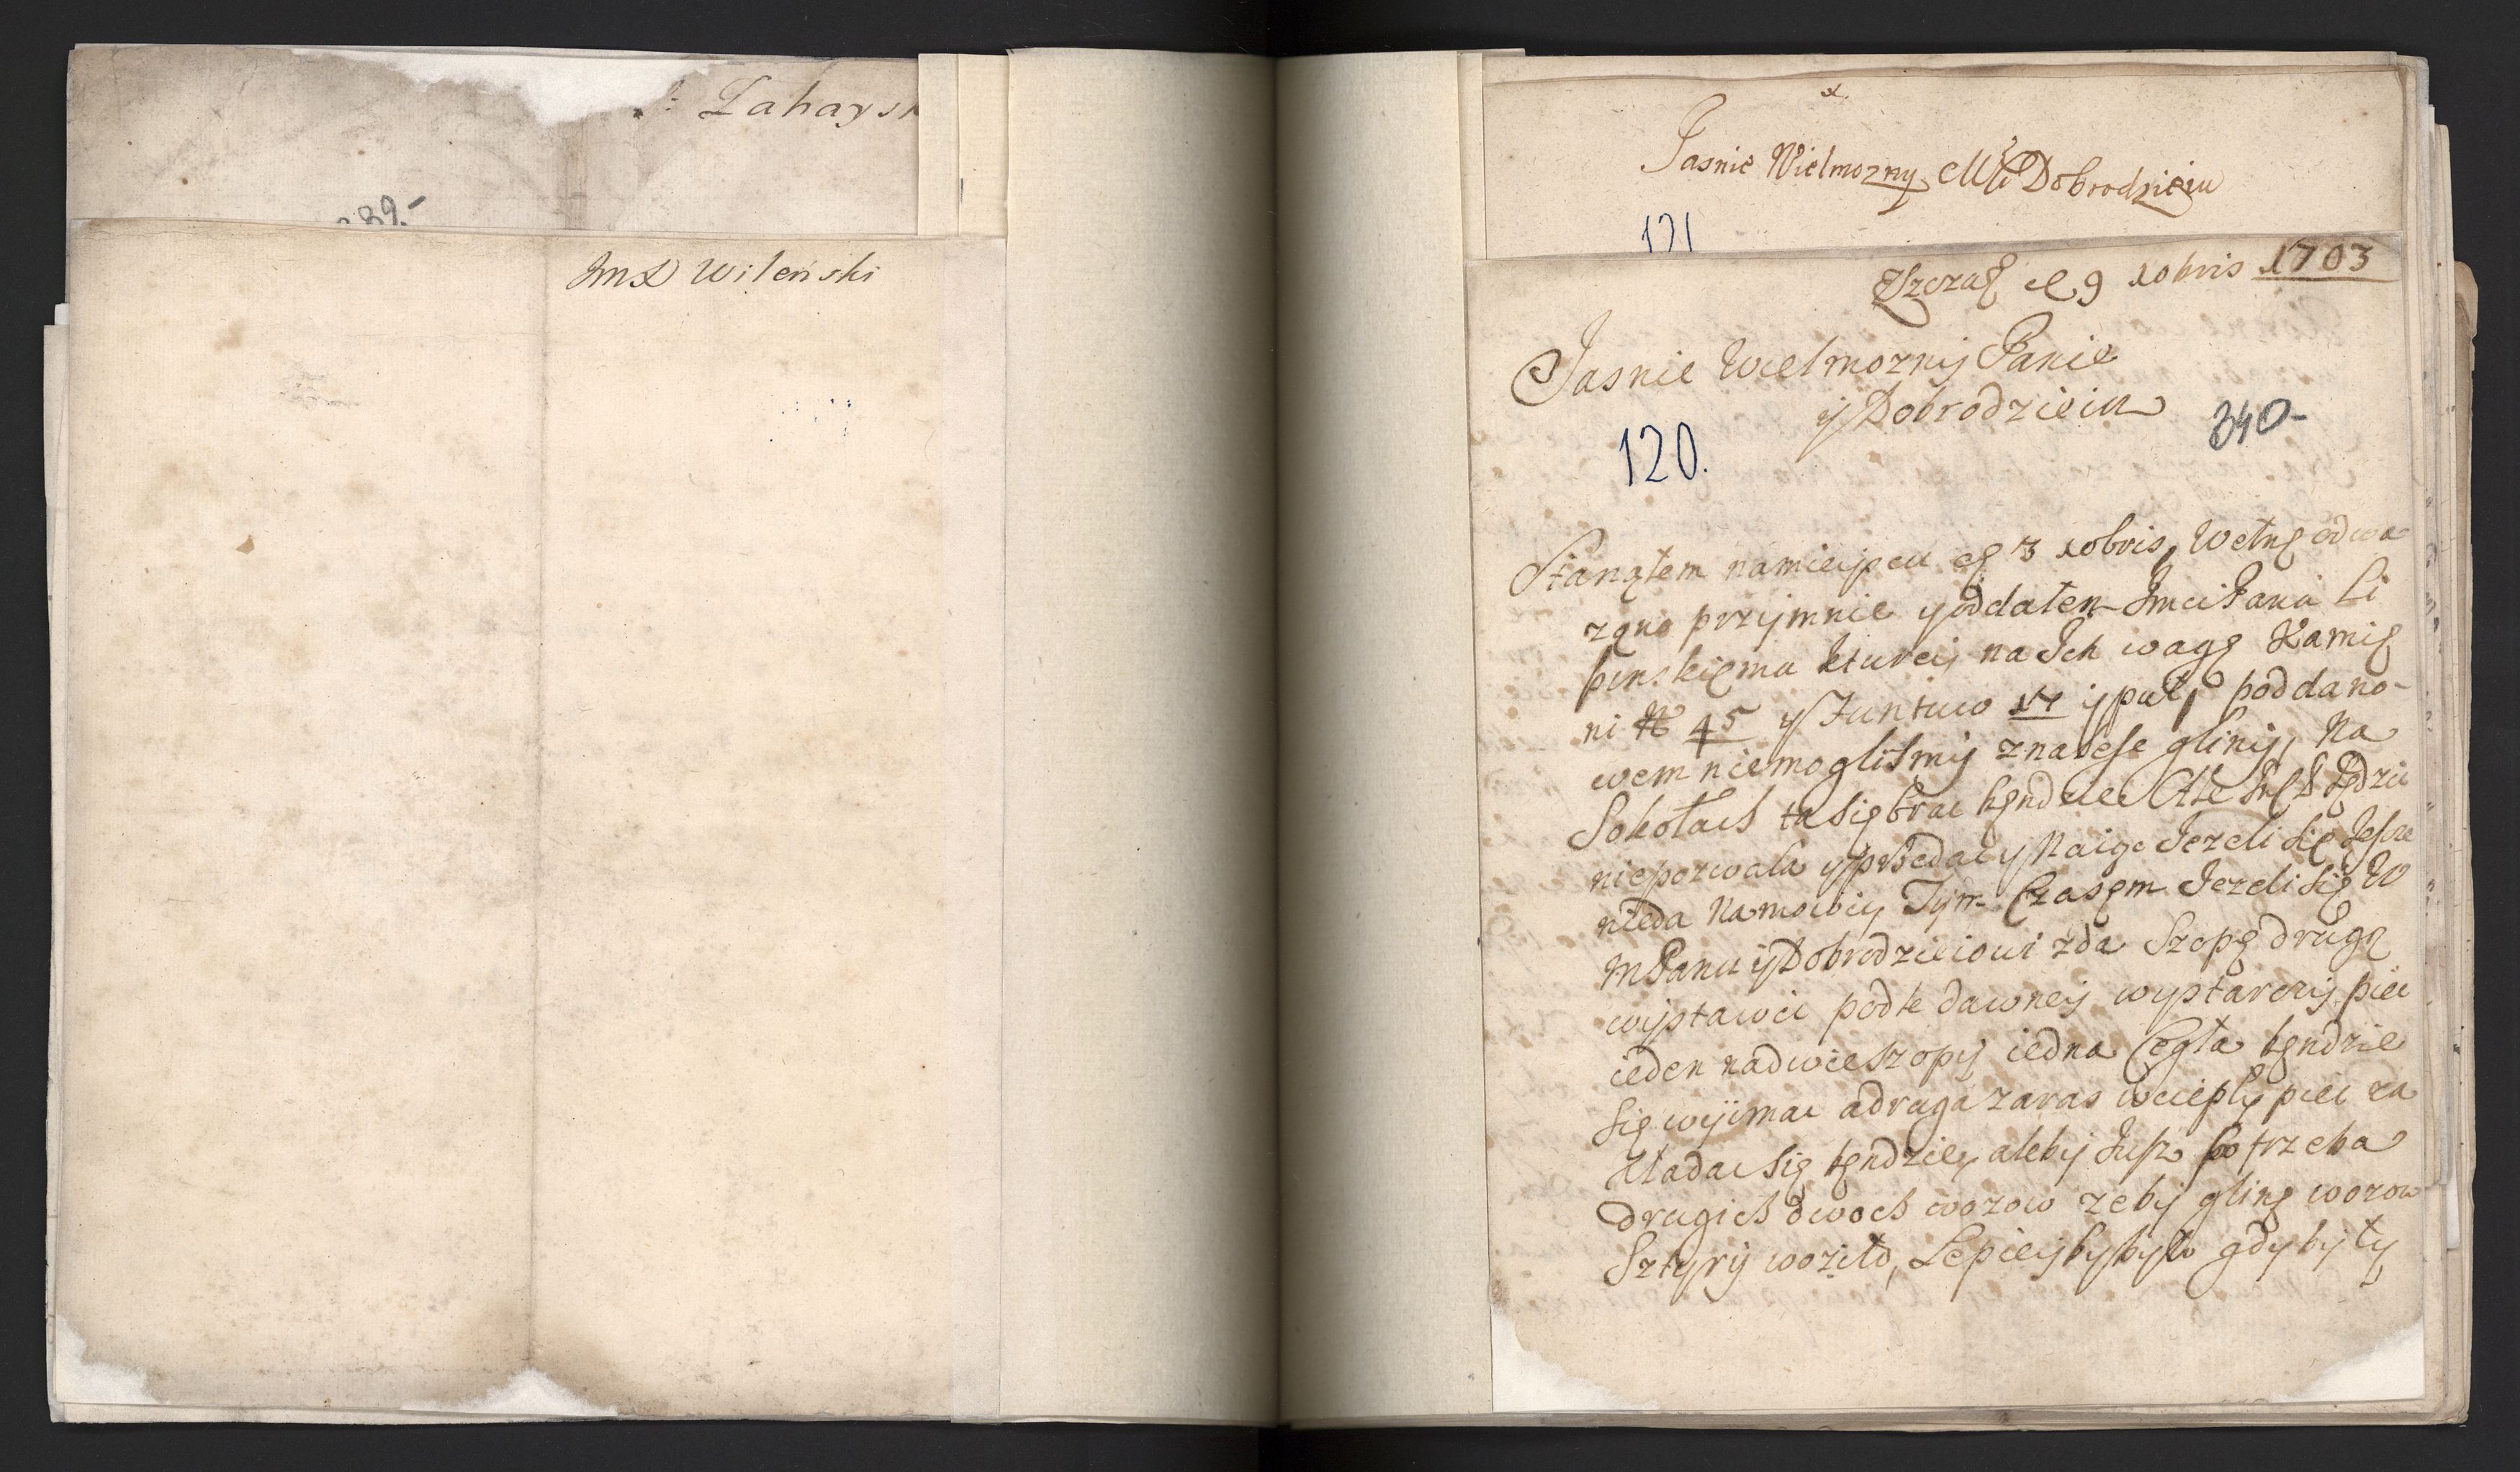 Lahaysk
389.-
JmX Wileński
Jasnie Wielmozny Mći Dobrodzieiu
121
9 Xobris 1703
Jasnie Wielmoznij Panie
ij Dobrodzieiu
120.
340-
Stanąłem namieijscu 3 xobris, Wełnę odwa
ząno przijmnie ij oddałem Jmci Panu Li
pinskięmu kturei na Ich wagę Kamię
ni N 45 ij Funtuw 17 ij puł, poddano-
wem niemoglismij znalese glinij, Na
Sokołach ta się brac bęndzie Ale Sędzia
niepozwala ij przedac ij Naige Jezeli się Jesze
nieda Namowicz Tym Czasęm Jezeli się W
MPanu ij Dobrodzieiowi zda Szopę drugą
wijstawic podle dawneij wystarczij piec
ieden nadwie szopij iedna Cęgła bęndzie
się wijimac adruga zaras wciepłij piec za
kładac się bęndzie, alebij Jusz potrzeba
drugich dwoch wozow zebij glinę wozow
Sztyrij woziło, Lepieij by było gdybij ty